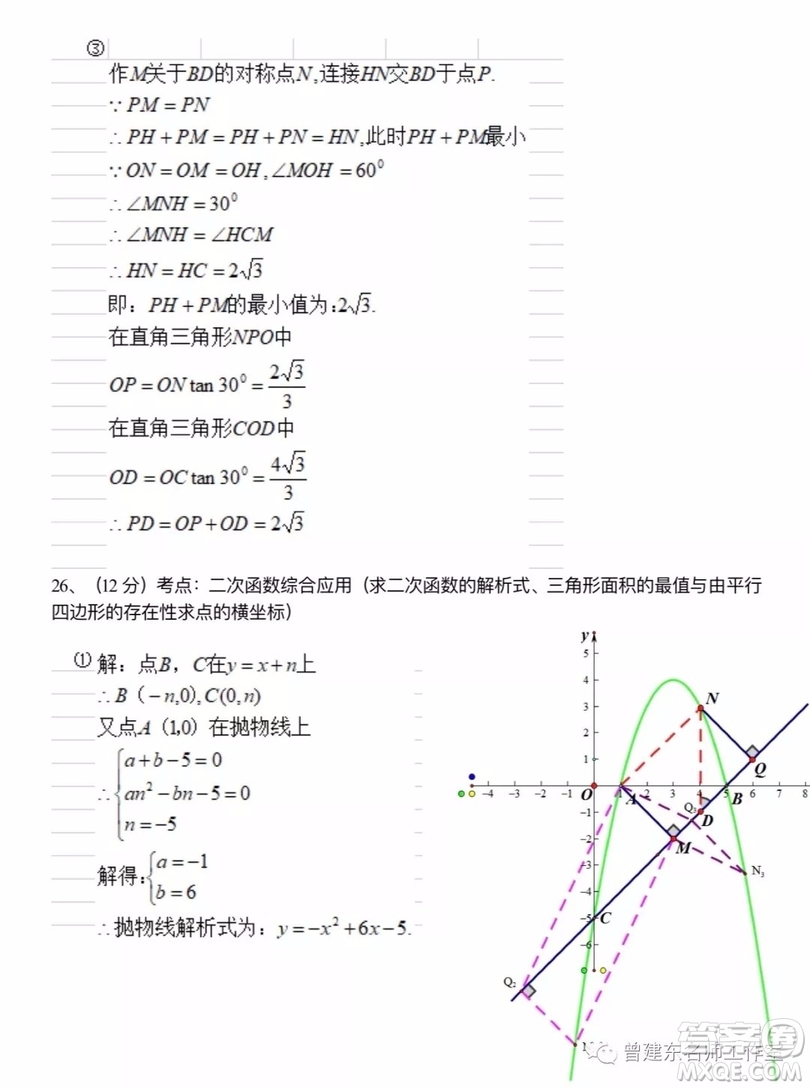 ③
作M关于BD的对称点N,连接HN交BD于点P.
∵PM=PN
∴PH+PM=PH+PN=HN,此时PH+PM最小
∵ON=OM=OH,∠MOH=60⁰
∴∠MNH=30⁰
∴∠MNH=∠HCM
∴HN=HC=2√3
即：PH+PM的最小值为：2√3.
在直角三角形NPO中
OP=ON tan 30⁰=2√3/3
在直角三角形COD中
OD=OC tan 30⁰=4√3/3
∴PD=OP+OD=2√3
26、（12 分）考点：二次函数综合应用（求二次函数的解析式、三角形面积的最值与由平行
四边形的存在性求点的横坐标）
① 解：点B，C在y=x+n上
∴B（-n,0),C(0,n)
又点A（1,0）在抛物线上
∴{a+b-5=0
an²-bn-5=0
n=-5
解得：{a=-1
b=6
∴抛物线解析式为：y=-x²+6x-5.
y
5
4
3
2
1
-4 -3 -2 -1 O 1 2 3 4 5 6 7 8
-1
-2
-3
-4
-5
-6
N
Q
A
B
Q₃
D
M
N₃
C
Q₂
曾建东名师工作室
答案圈
MXQE.COM